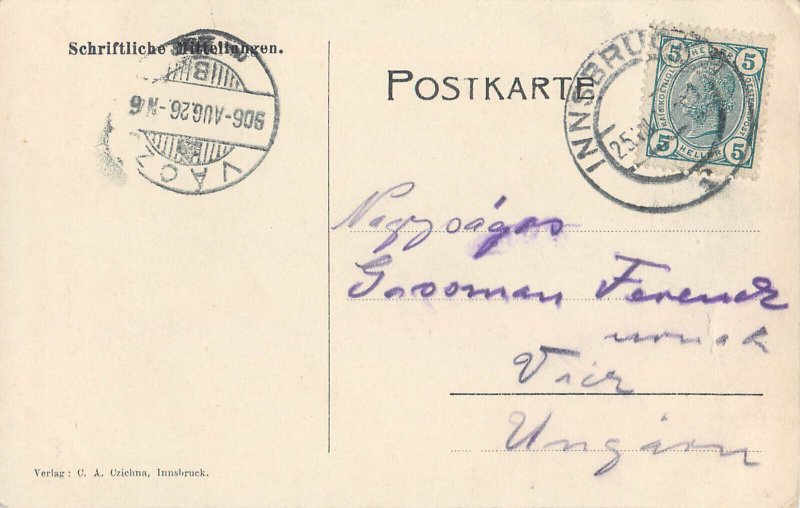 Schriftliche Mitteilungen.
906-AUG.26-N6
B
VÁCZ
POSTKARTE
INNSBRUCK
25.
5 HELLER 5
5 HELLER 5
Nagyságos
Grossman Ferencz
urnak
Vácz
Ungarn
Verlag: C. A. Czichna, Innsbruck.